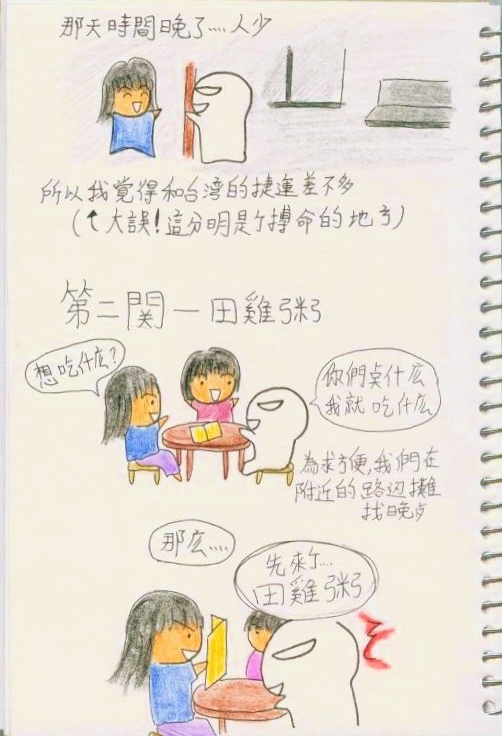 那天時間晚了....人少
所以我覺得和台湾的捷運差不多
(↑大誤!這分明是个搏命的地方)
第二關—田雞粥
想吃什庅?
你們点什庅
我就吃什庅
為求方便,我們在
附近的路边攤
找晚歺
那庅....
先來个...
田雞粥